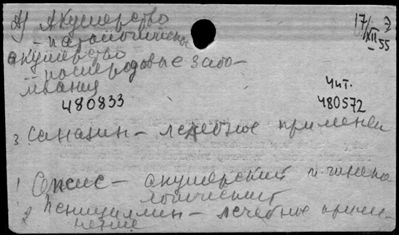 А) Акушерство
17/XII 55 Э
– патологическ
акушерство
– послеродовые забо-
левания
480833
Чит.
480572
3 саназин – лечебное применен
1 Сепсис – акушерский и гинеко
логический
2 Пенициллин – лечебное приме-
нение